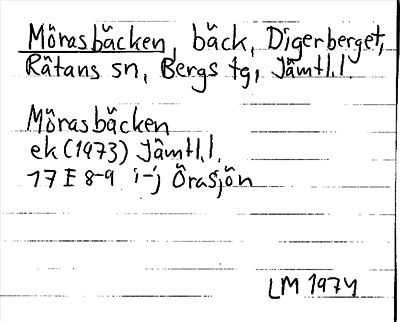 Mörasbäcken, bäck, Digerberget,
Rätans sn, Bergs tg, Jämtl.l.
Mörasbäcken
ek (1973) Jämtl.l.
17 E 8-9 i-j Örasjön
LM 1974